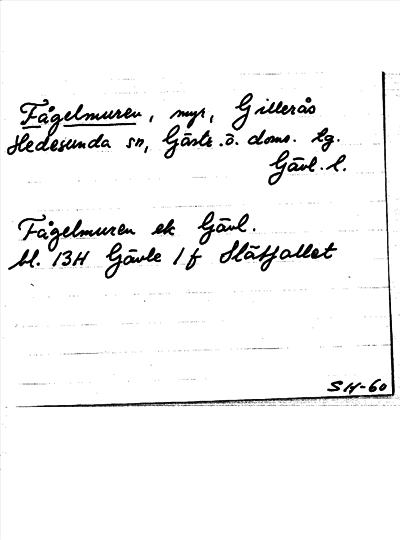 Fågelmuren, myr, Gillerås
Hedesunda sn, Gästr.ö. doms. tg.
Gävl. l.
Fågelmuren ek Gävl.
bl. 13H Gävle 1 f Slåtfallet
SH-60